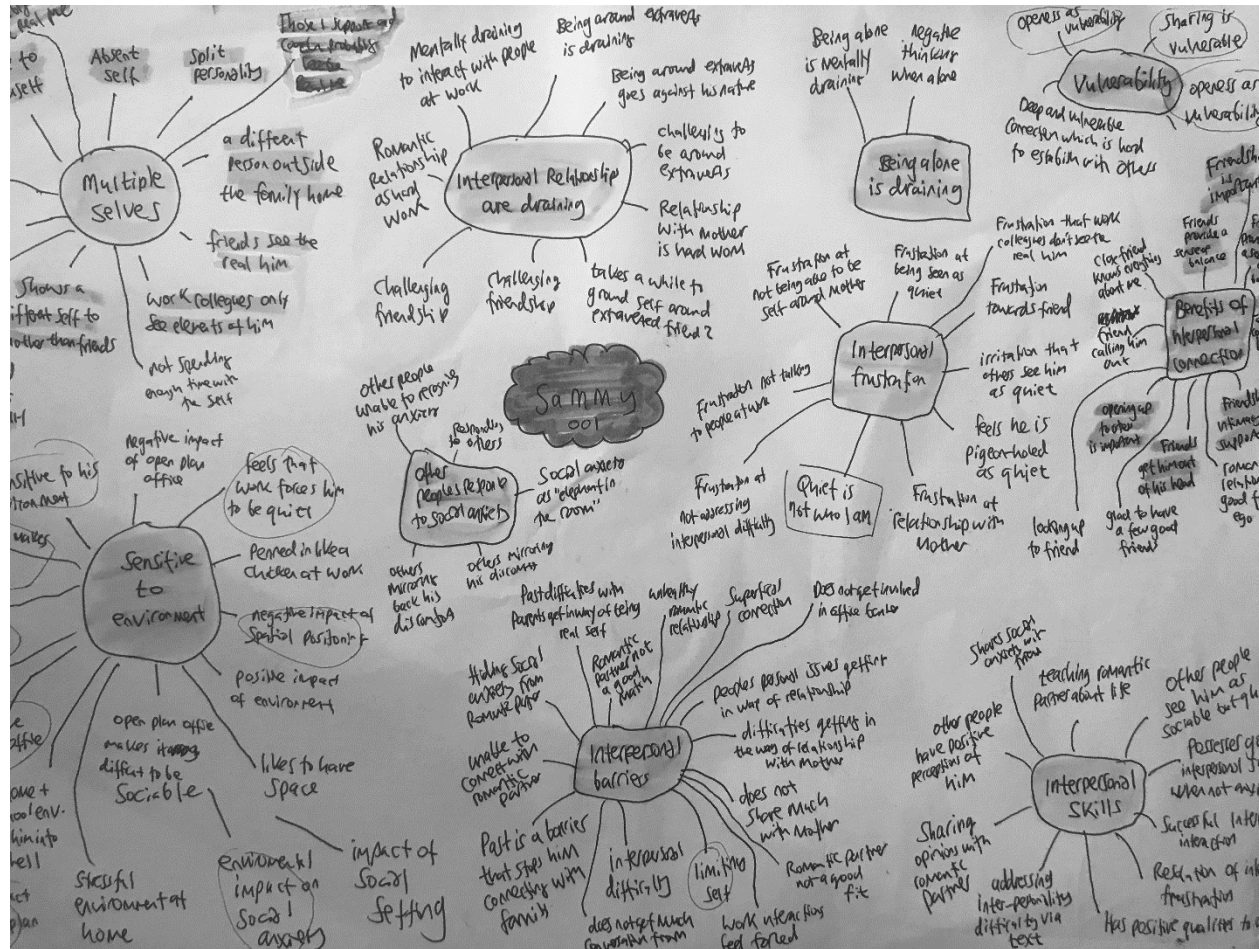 real me
to
myself
Absent
self
Split
personality
Those I support and
Multiple
selves
a different
person outside
the family home
friends see the
real him
work collegues only
see elements of him
not spending
enough time with
the self
Shows a
different self to
mother than friends
Interpersonal Relationship
are draining
Mentally draining
to interact with people
at work
Being around extraverts
is draining
Being around extraverts
goes against his nature
challenging to
be around
extraverts
Relationship
with Mother
is hard work
takes a while to
ground self around
extraverted friend?
Challenging
friendship
Challenging
friendship
Romantic
Relationship
as hard
work
Being alone
is draining
Being alone
is mentally
draining
negative
thinking
when alone
Vulnerability
openess as
vulnerability
Sharing is
vulnerable
openess as
vulnerability
Deep and vulnerable
connection which is hard
to establish with others
Sammy
001
Interpersonal
frustration
Frustration at
not being able to be
self around Mother
Frustration at
being seen as
quiet
Frustration that work
colleagues don't see the
real him
Frustration
towards friend
irritation that
others see him
as quiet
feels he is
pigeon-holed
as quiet
Frustration at
relationship with
Mother
Quiet is
not who I am
Frustration at
not addressing
interpersonal difficulty
Frustration not talking
to people at work
Benefits of
interpersonal
connection
Friendship
is
important
Friends
provide a
sense of
balance
Close friend
knows everything
about me
friend
calling him
out
opening up
to others
is important
looking up
to friend
Friends
get him out
of his head
glad to have
a few good
friends
Friendship
intimate
support
romantic
relation
good for
ego
Other
peoples response
to social anxiety
other people
unable to recognise
his anxiety
Responding
to others
Social anxiety
as "elephant in
the room"
others mirroring
his discomfort
others
mirroring
back his
discomfort
Sensitive
to
environment
sensitive to his
environment
makes
negative impact
of open plan
office
feels that
work forces him
to be quiet
Penned in like a
chicken at work
negative impact of
spatial positioning
positive impact
of environment
likes to have
space
impact of
social
setting
enviromental
impact on
social
anxiety
open plan office
makes it
difficult to be
sociable
stressful
environment at
home
office
him into
plan
Interpersonal
barriers
Past difficulties with
Parents get in way of being
real self
Romantic
partner not
a good
match
unhealthy
romantic
relationship
Superficial
connection
Does not get involved
in office banter
peoples personal issues getting
in way of relationship
difficulties getting in
the way of relationship
with Mother
does not
share much
with Mother
Romantic partner
not a good
fit
Work interactions
feel forced
limiting
self
interpersonal
difficulty
does not get much
conversation from
Past is a barrier
that stops him
connecting with
family
unable to
connect with
romantic
partner
Hiding social
anxiety from
Romantic partner
Interpersonal
skills
Shares social
anxiety with
friend
teaching romantic
partner about life
other people
see him as
sociable but
Possesses
interpersonal
when not
Successful
interaction
Resolution of
frustration
Has positive qualities to
addressing
inter-personality
difficulty via
text
Sharing
opinions with
romantic
partner
other people
have positive
perceptions of
him